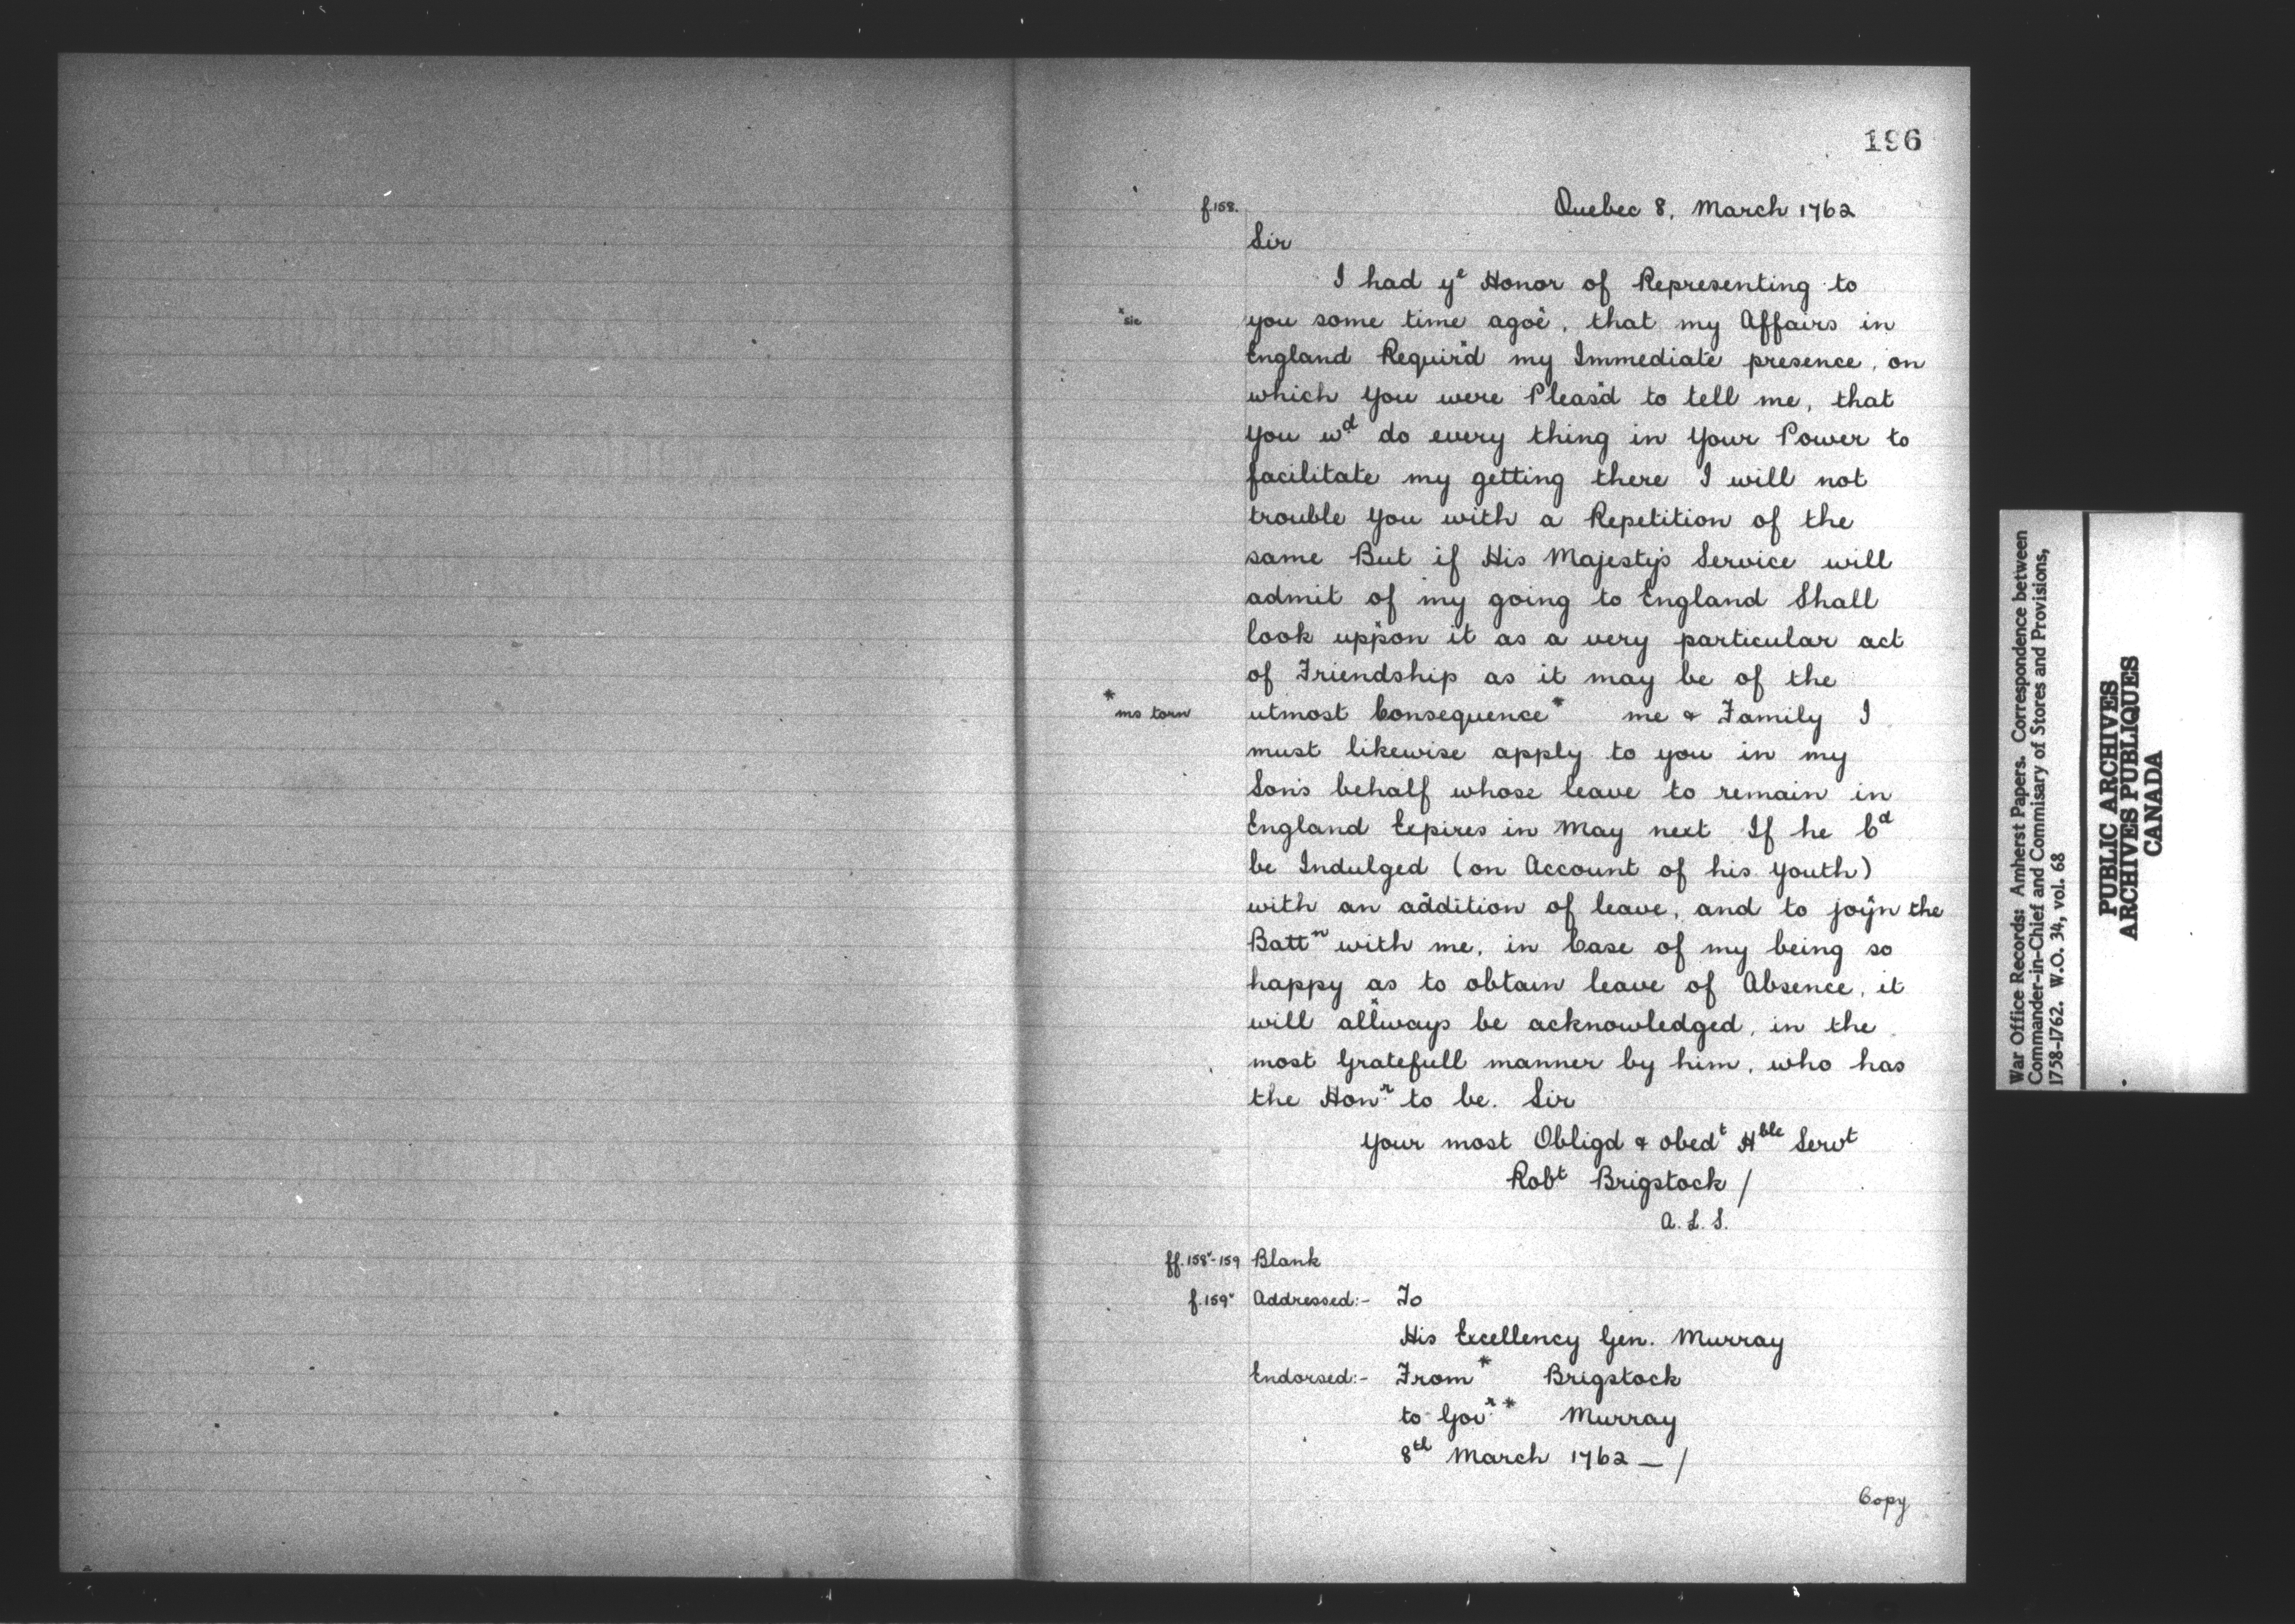 196
f.158. Quebec 8, March 1762
Sir
I had yᵉ Honor of Representing to
*sic you some time agoe*, that my Affairs in
England Requir'd my Immediate presence, on
which You were Pleas'd to tell me, that
You wᵈ do every thing in Your Power to
facilitate my getting there I will not
trouble You with a Repetition of the
same But if His Majesty's Service will
admit of my going to England Shall
look uppon* it as a very particular act
of Friendship as it may be of the
*ms torn utmost Consequence* me & Family I
must likewise apply to you in my
Son's behalf whose leave to remain in
England Expires in May next If he Cᵈ
be Indulged (on Account of his Youth)
with an addition of leave, and to joyn the
Battⁿ with me, in Case of my being so
happy as to obtain leave of Absence, it
will allways* be acknowledged, in the
most Gratefull manner by him, who has
the Honʳ to be. Sir
Your most Obligd & obedᵗ Hᵇˡᵉ Servᵗ
Robᵗ Brigstock /
A. L. S.
ff.158ᵛ-159 Blank
f.159ᵛ Addressed:- To
His Excellency Gen. Murray
Endorsed:- From* Brigstock
to Govʳ* Murray
8ᵗʰ March 1762 — /
Copy
War Office Records: Amherst Papers. Correspondence between
Commander-in-Chief and Commisary of Stores and Provisions,
1758-1762. W.O. 34, vol. 68
PUBLIC ARCHIVES
ARCHIVES PUBLIQUES
CANADA